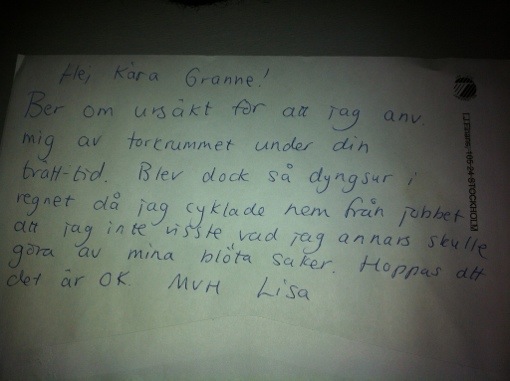 Hej Kära Granne!
Ber om ursäkt för att jag anv.
mig av torkrummet under din
tvätt-tid. Blev dock så dyngsur i
regnet då jag cyklade hem från jobbet
att jag inte visste vad jag annars skulle
göra av mina blöta saker. Hoppas att
det är OK. MVH Lisa
106 24 STOCKHOLM